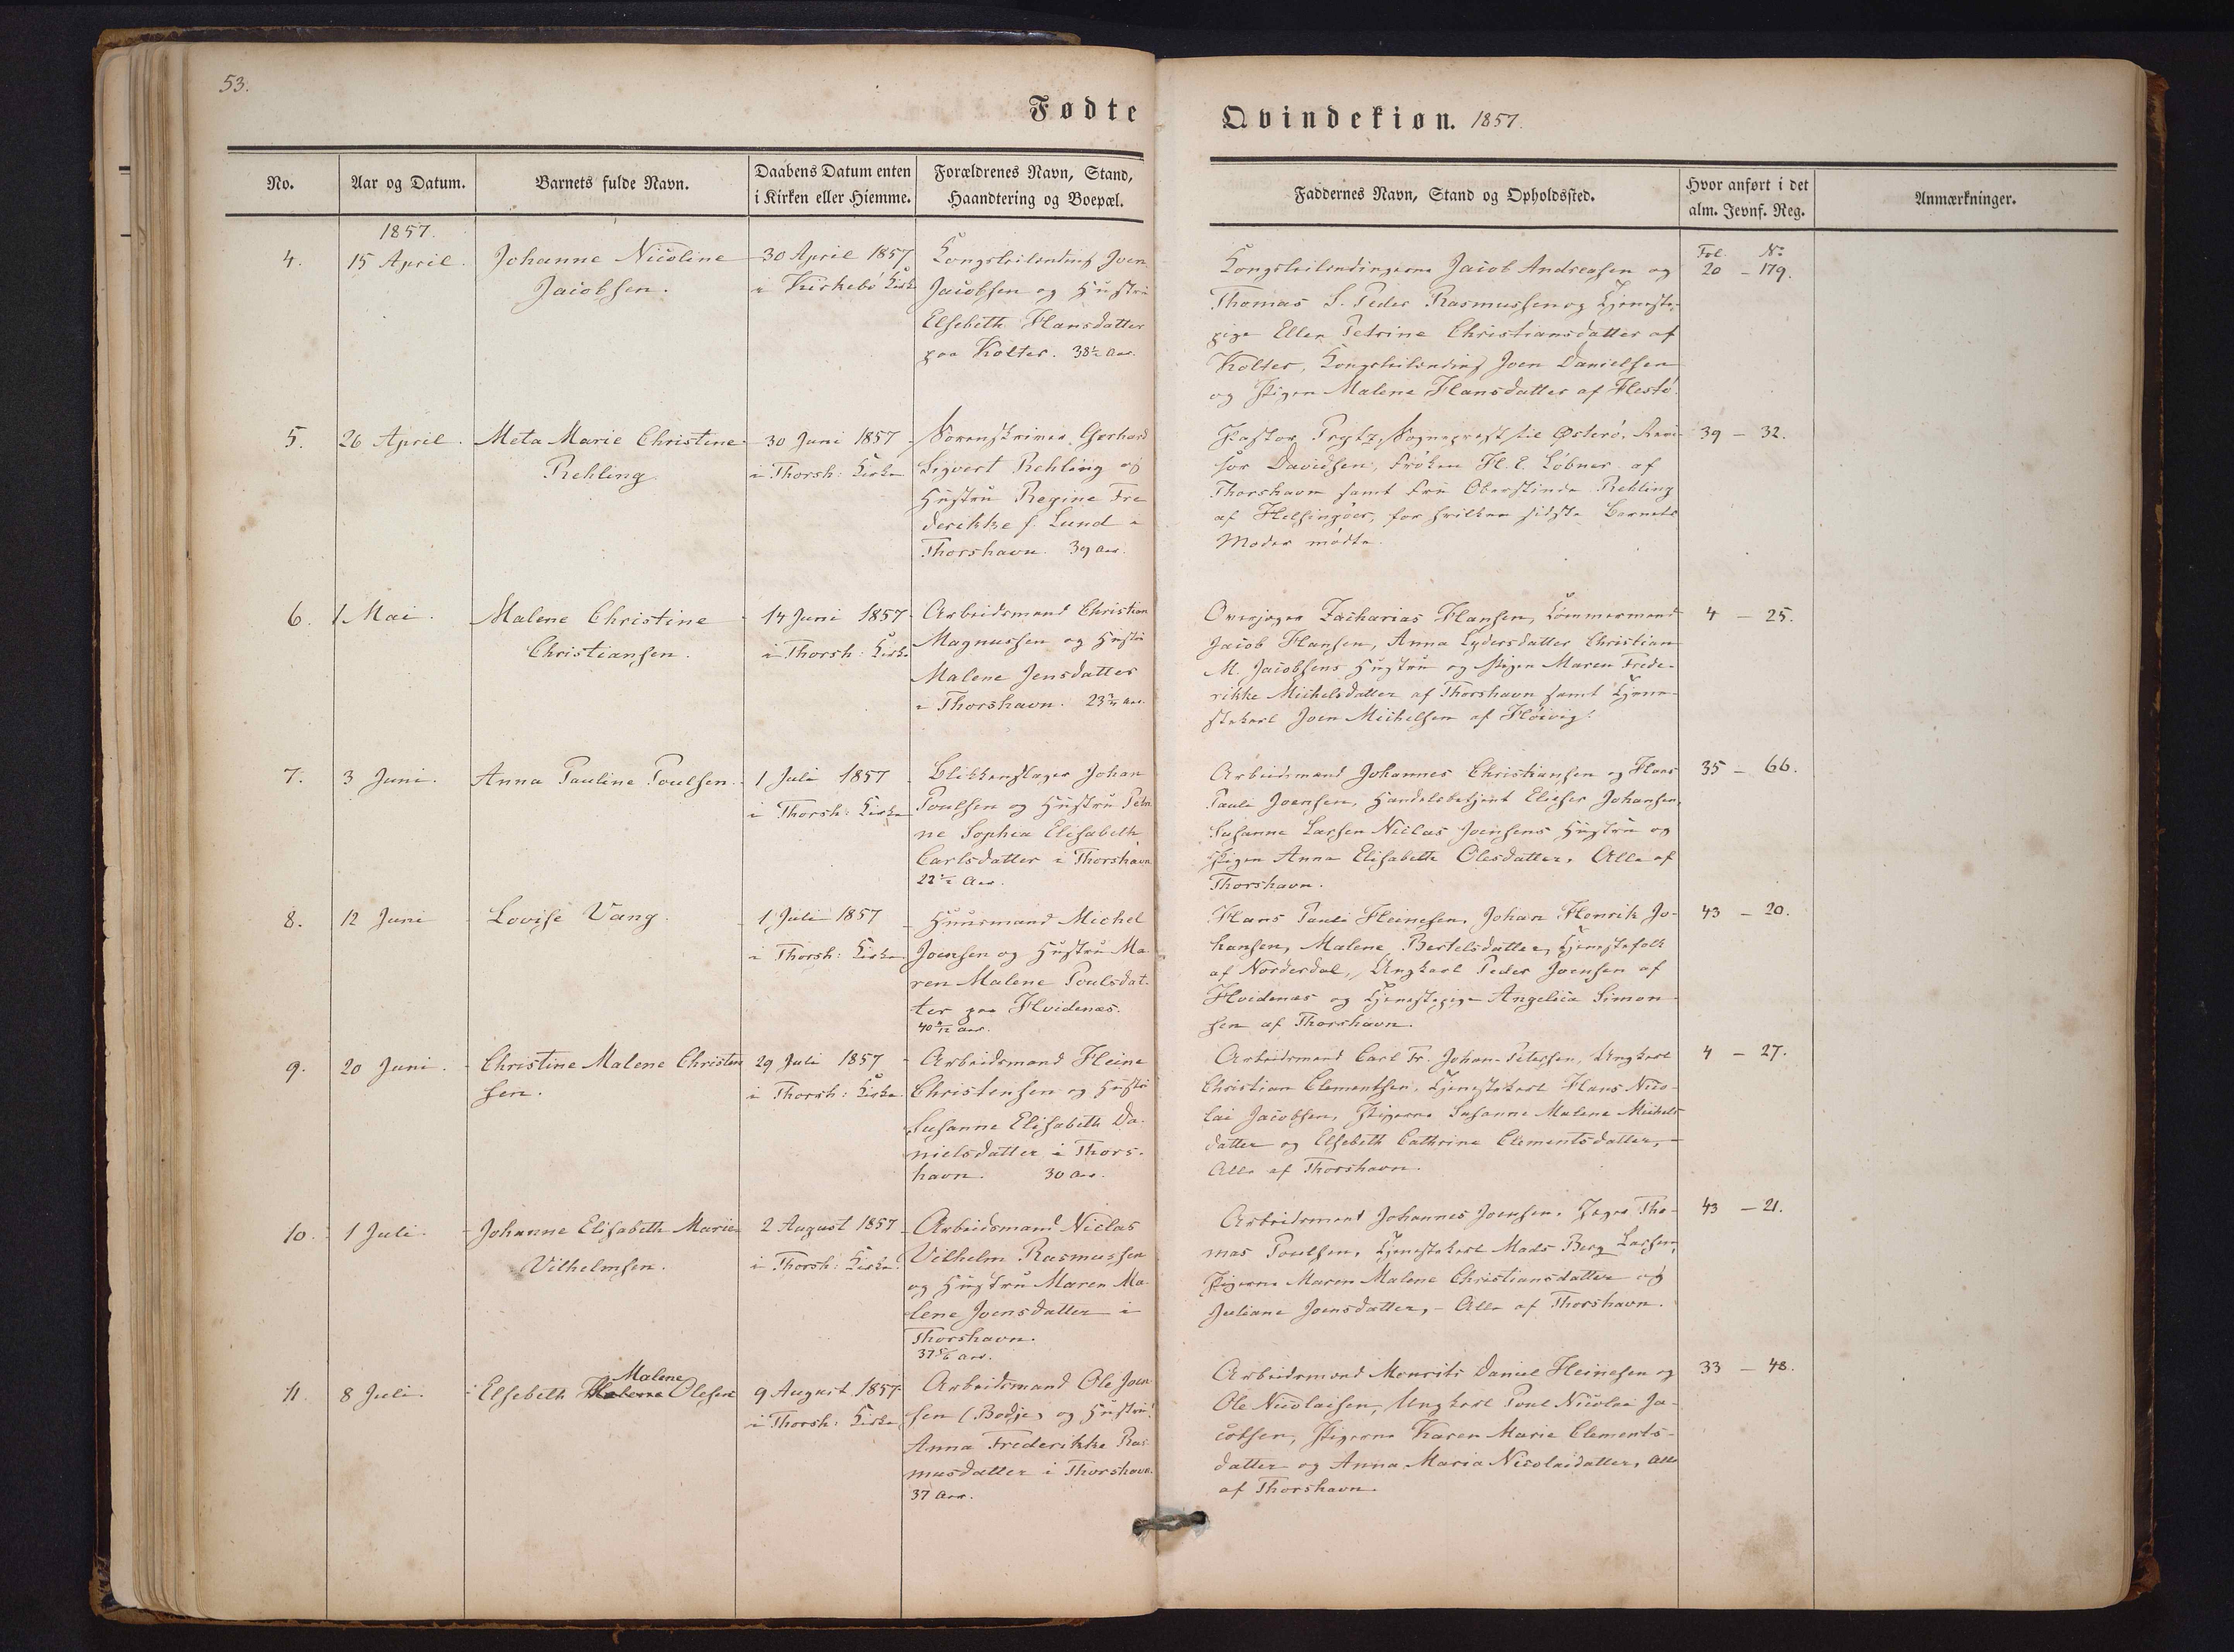 53.
Fødte
Qvindekiøn. 1857.
No.
Aar og Datum.
Barnets fulde Navn.
Daabens Datum enten
i Kirken eller Hiemme.
Forældrenes Navn, Stand,
Haandtering og Boepæl.
Faddernes Navn, Stand og Opholdssted.
Hvor anført i det
alm. Jevnf. Reg.
Anmærkninger.
1857.
4.
15 April.
Johanne Nicoline
Jacobsen.
30 April 1857
i Kirkebö Kirke
Kongsleilending Joen
Jacobsen og Hustru
Elsebeth Hansdatter
paa Kolter. 38½ Aar.
Kongsleilendingerne Jacob Andreasen og
Thomas S. Peder Rasmussen og Tjeneste-
pige Ellen Petrine Christiansdatter af
Kolter, Kongsleilending Joen Danielsen
og Pigen Malene Hansdatter af Hestö.
Fol. No
20 - 179.
5.
26 April.
Meta Marie Christine
Rehling
30 Juni 1857
i Thorsh: Kirke
Sorenskriver Gerhard
Sigvert Rehling og
Hustru Regine Fre
derikke f. Lund i
Thorshavn. 39 Aar.
Pastor Prytz, Sognepræst til Österö, Revi-
sor Davidsen, Fröken H. C. Löbner af
Thorshavn samt Fru Oberstinde Rehling
af Helsingöer, for hvilken sidste Barnets
Moder mödte.
39 - 32.
6.
1 Mai.
Malene Christine
Christiansen.
14 Juni 1857
i Thorsh: Kirke
Arbeidsmand Christian
Magnussen og Hustru
Malene Jensdatter
i Thorshavn. 23 Aar.
Overjæger Zacharias Hansen, Tömmermand
Jacob Hansen, Anna Lydersdatter Christian
M. Jacobsens Hustru og Pigen Maren Frede-
rikke Michelsdatter af Thorshavn samt Tjene-
stekarl Joen Michelsen af Höivig.
4 - 25.
7.
3 Juni.
Anna Pauline Poulsen.
1 Juli 1857
i Thorsh: Kirke
Blikkenslager Johan
Poulsen og Hustru Petri
ne Sophia Elisabeth
Carlsdatter i Thorshavn
22½ Aar.
Arbeidsmand Johannes Christiansen og Hans
Pauli Joensen, Handelsbetjent Elieser Johansen,
Susanne Larsen Niclas Joensens Hustru og
Pigen Anna Elisabeth Olesdatter. Alle af
Thorshavn.
35 - 66.
8.
12 Juni
Lovise Vang.
1 Juli 1857
i Thorsh: Kirke.
Huusmand Michel
Joensen og Hustru Ma
ren Malene Poulsdat-
ter paa Hvidenæs.
40 Aar.
Hans Pauli Heinesen, Johan Henrik Jo-
hansen, Malene Bertelsdatter, Tjenestefolk
af Norderdal, Ungkarl Peder Joensen af
Hvidenæs og Tjenestepige Angelica Simon-
sen af Thorshavn.
43 - 20.
9.
20 Juni.
Christine Malene Christen
sen.
29 Juli 1857
i Thorsh: Kirke.
Arbeidsmand Heine
Christensen og Hustru
Susanne Elisabeth Da-
nielsdatter i Thors-
havn. 30 Aar.
Arbeidsmand Carl Fr. Johan Petersen, Ungkarl
Christian Clementsen, Tjenestekarl Hans Nico-
lai Jacobsen, Pigerne Susanne Malene Michels
datter og Elsebeth Cathrine Clementsdatter, -
Alle af Thorshavn.
4 - 27.
10.
1 Juli.
Johanne Elisabeth Marie
Vilhelmsen.
2 August 1857
i Thorsh: Kirke.
Arbeidsmand Niclas
Vilhelm Rasmussen
og Hustru Maren Ma-
lene Joensdatter i
Thorshavn.
37 5/6 Aar.
Arbeidsmand Johannes Joensen, Jæger Tho-
mas Poulsen, Tjenestekarl Mads Berg Larsen,
Pigerne Maren Malene Christiansdatter og
Juliane Joensdatter, - Alle af Thorshavn.
43 - 21.
11.
8 Juli.
Malene
Elsebeth Olesen
9 August 1857
i Thorsh: Kirke
Arbeidsmand Ole Joen
sen (Bodje) og Hustru
Anna Frederikke Ras-
musdatter i Thorshavn.
37 Aar.
Arbeidsmand Mourits Daniel Heinesen og
Ole Nicolaisen, Ungkarl Poul Nicolai Ja-
cobsen, Pigerne Karen Marie Clements-
datter og Anna Maria Nicolaidatter, Alle
af Thorshavn.
33 - 48.